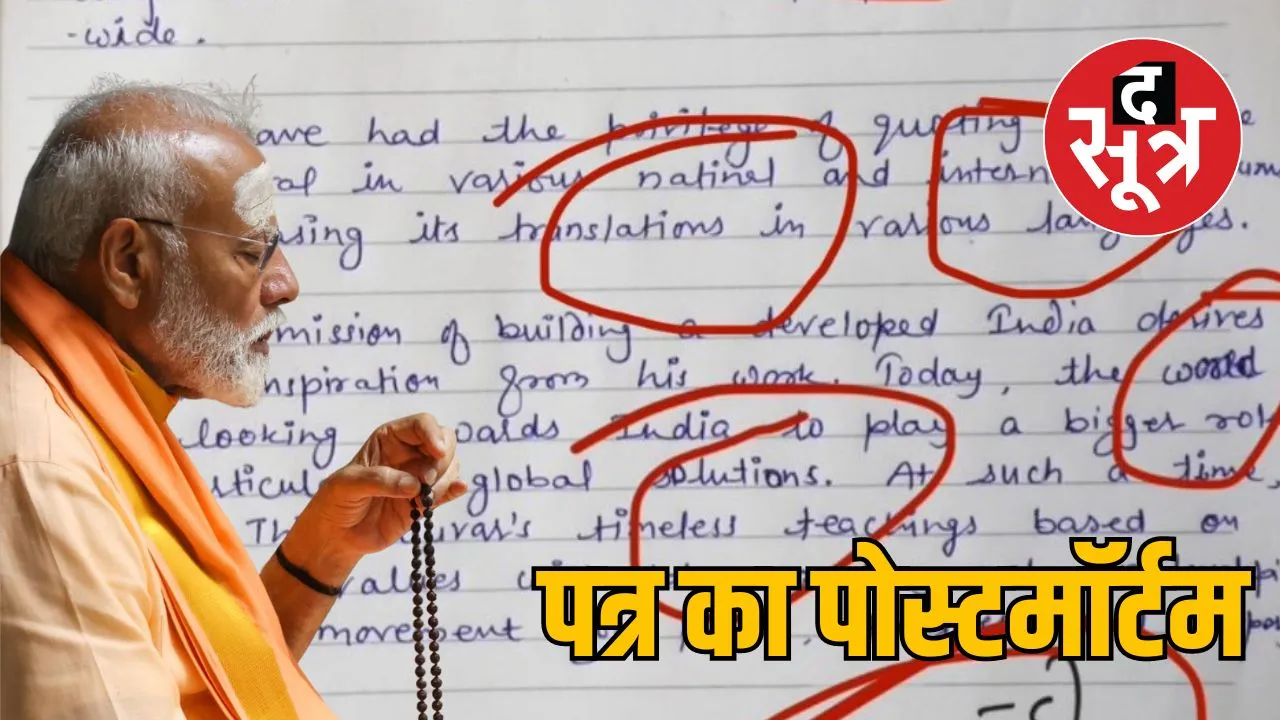 -wide.
द
सूत्र
ave had the privilege of quoting
al in various natinal and intern
using its translations in various languages.
mission of building a developed India derives
nspiration from his work. Today, the world
looking wards India to play a bigger rol
rticul global solutions. At such a time,
Th uvar's timeless teachings based on
values
पत्र का पोस्टमॉर्टम
movement